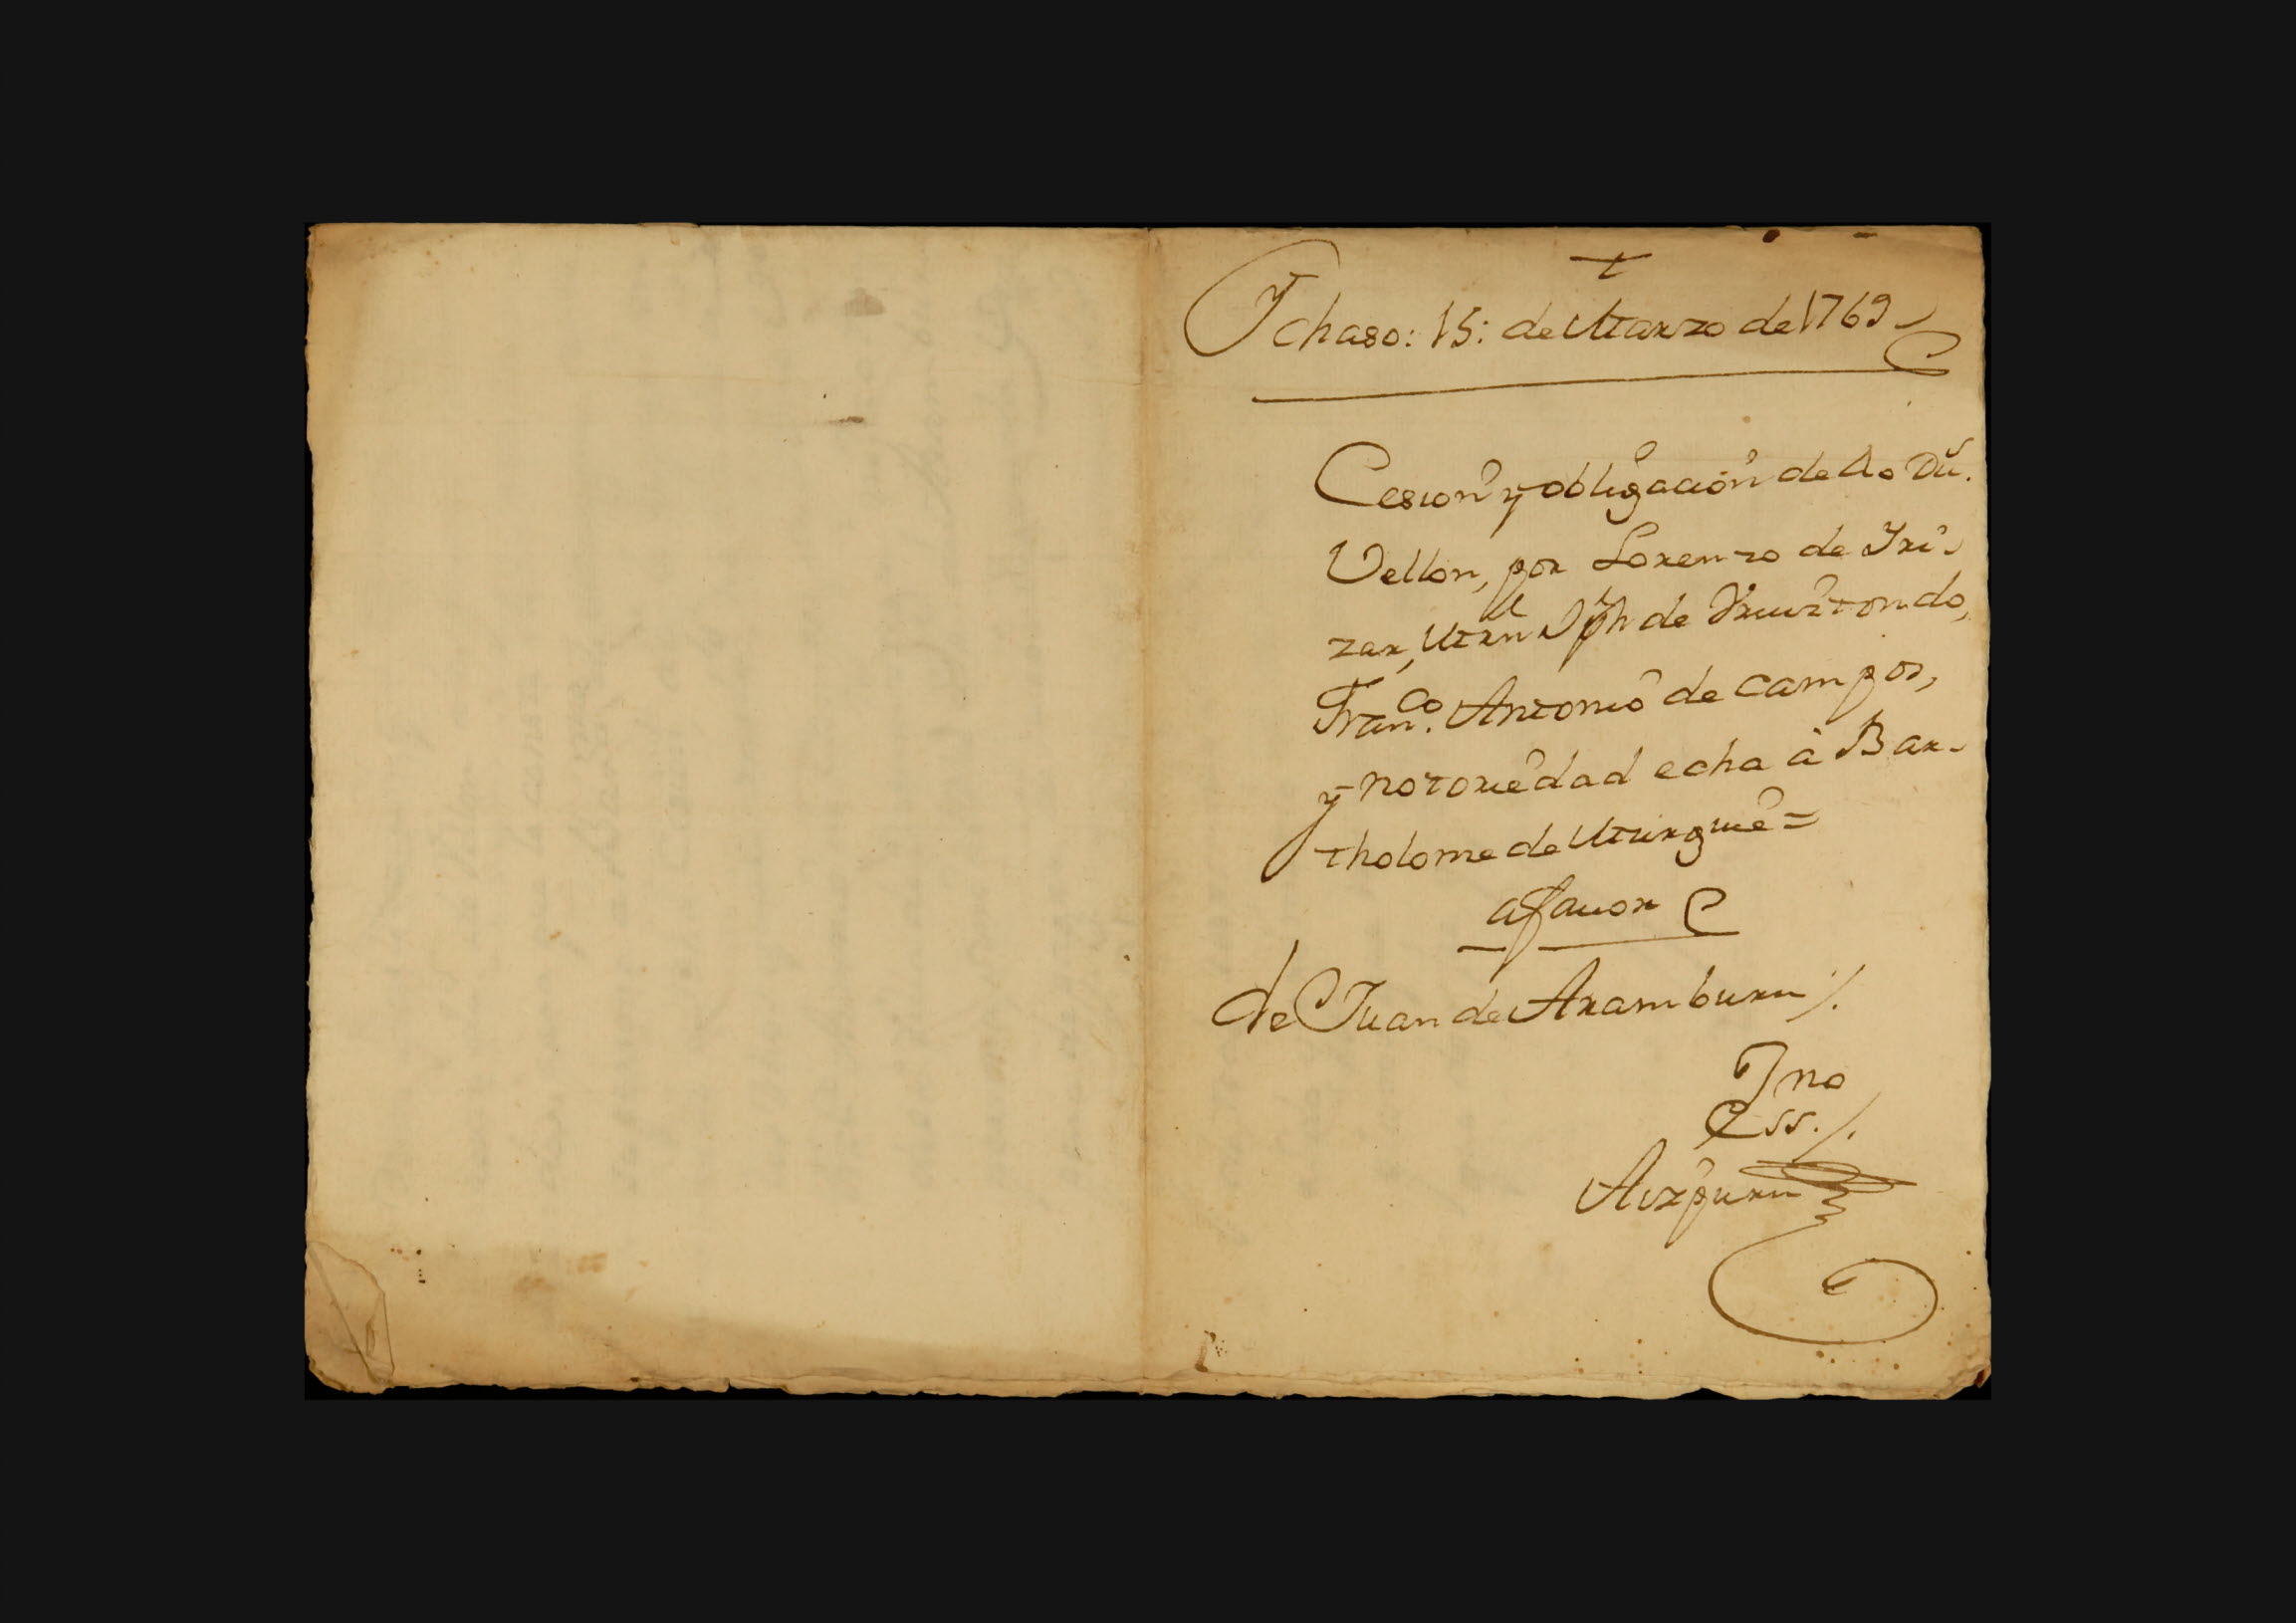 +
Ychaso: 15: de Marzo de 1769
Cesion y obligación de 40 Du.
Vellon, por Lorenzo de Yri-
zar, Mrn Jph de Vruztondo,
Fran.co Antonio de Campos,
y notoriedad echa à Bar-
tholome de Murguie =
a favor
de Juan de Aramburu /.
Ess. /.
Aizpuru